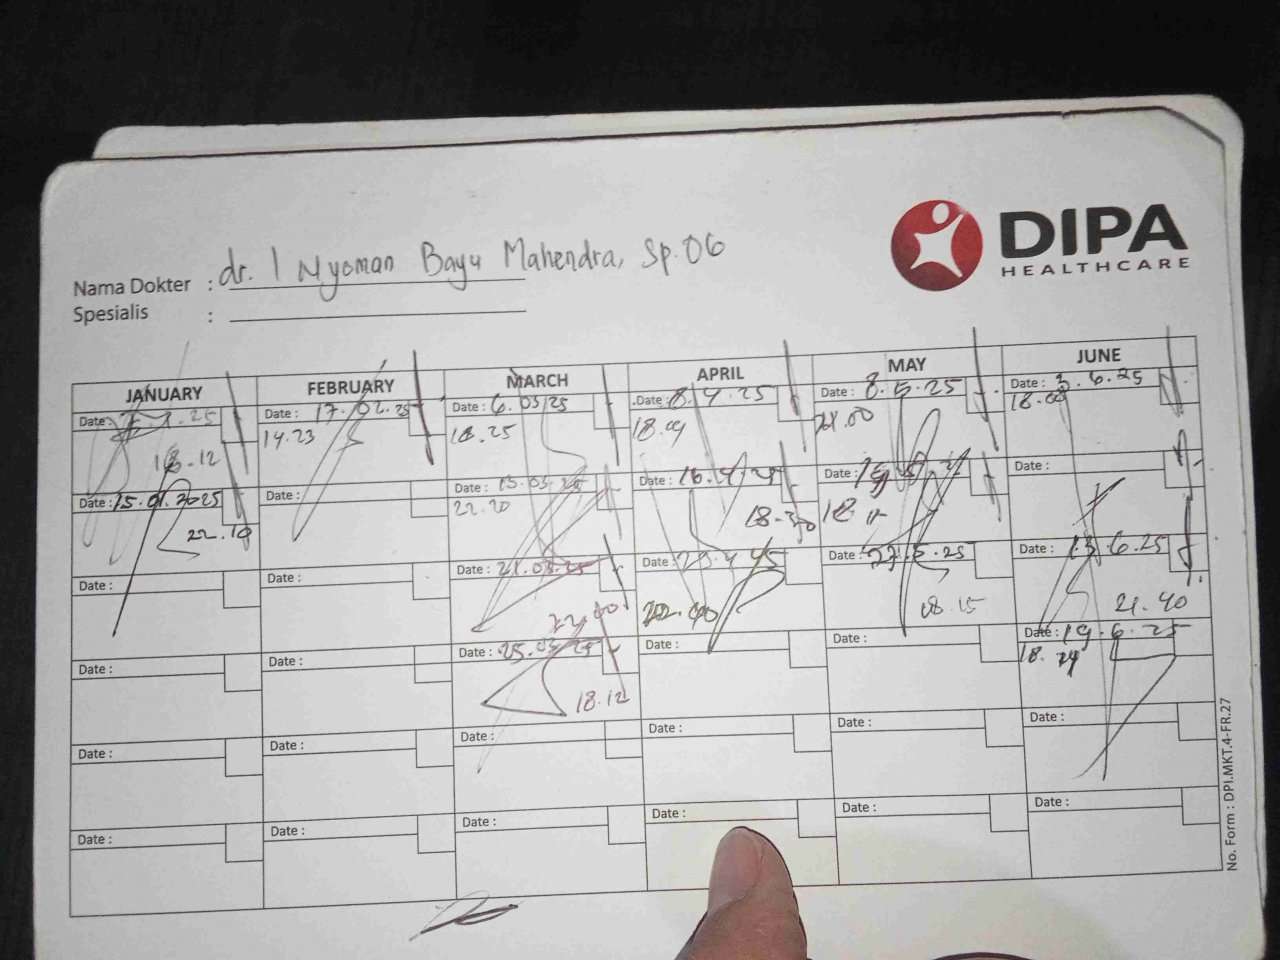 DIPA
HEALTHCARE
Nama Dokter : dr. I Nyoman Bayu Mahendra, Sp.OG
Spesialis :
JANUARY FEBRUARY MARCH APRIL MAY JUNE
Date : .1.25 Date : 17.02.25 Date : 6.03.25 Date : 8.4.25 Date : 8.5.25 Date : 3.6.25
18.12 14.23 18.25 18.09 21.00 18.00
Date : 15.01.2025 Date : Date : 15.03.25 Date : 16.4.25 Date : Date :
22.10 22.20 18.30 18.
Date : Date : Date : 21.03.25 Date : 23.4.45 Date : 27.5.25 Date : 13.6.25
22.00 18.15 21.40
Date : Date : Date : 25.03.25 Date : Date : Date : 19.6.25
18.12 18.
Date : Date : Date : Date : Date : Date :
Date : Date : Date : Date : Date : Date :
No. Form : DPI.MKT.4-FR.27